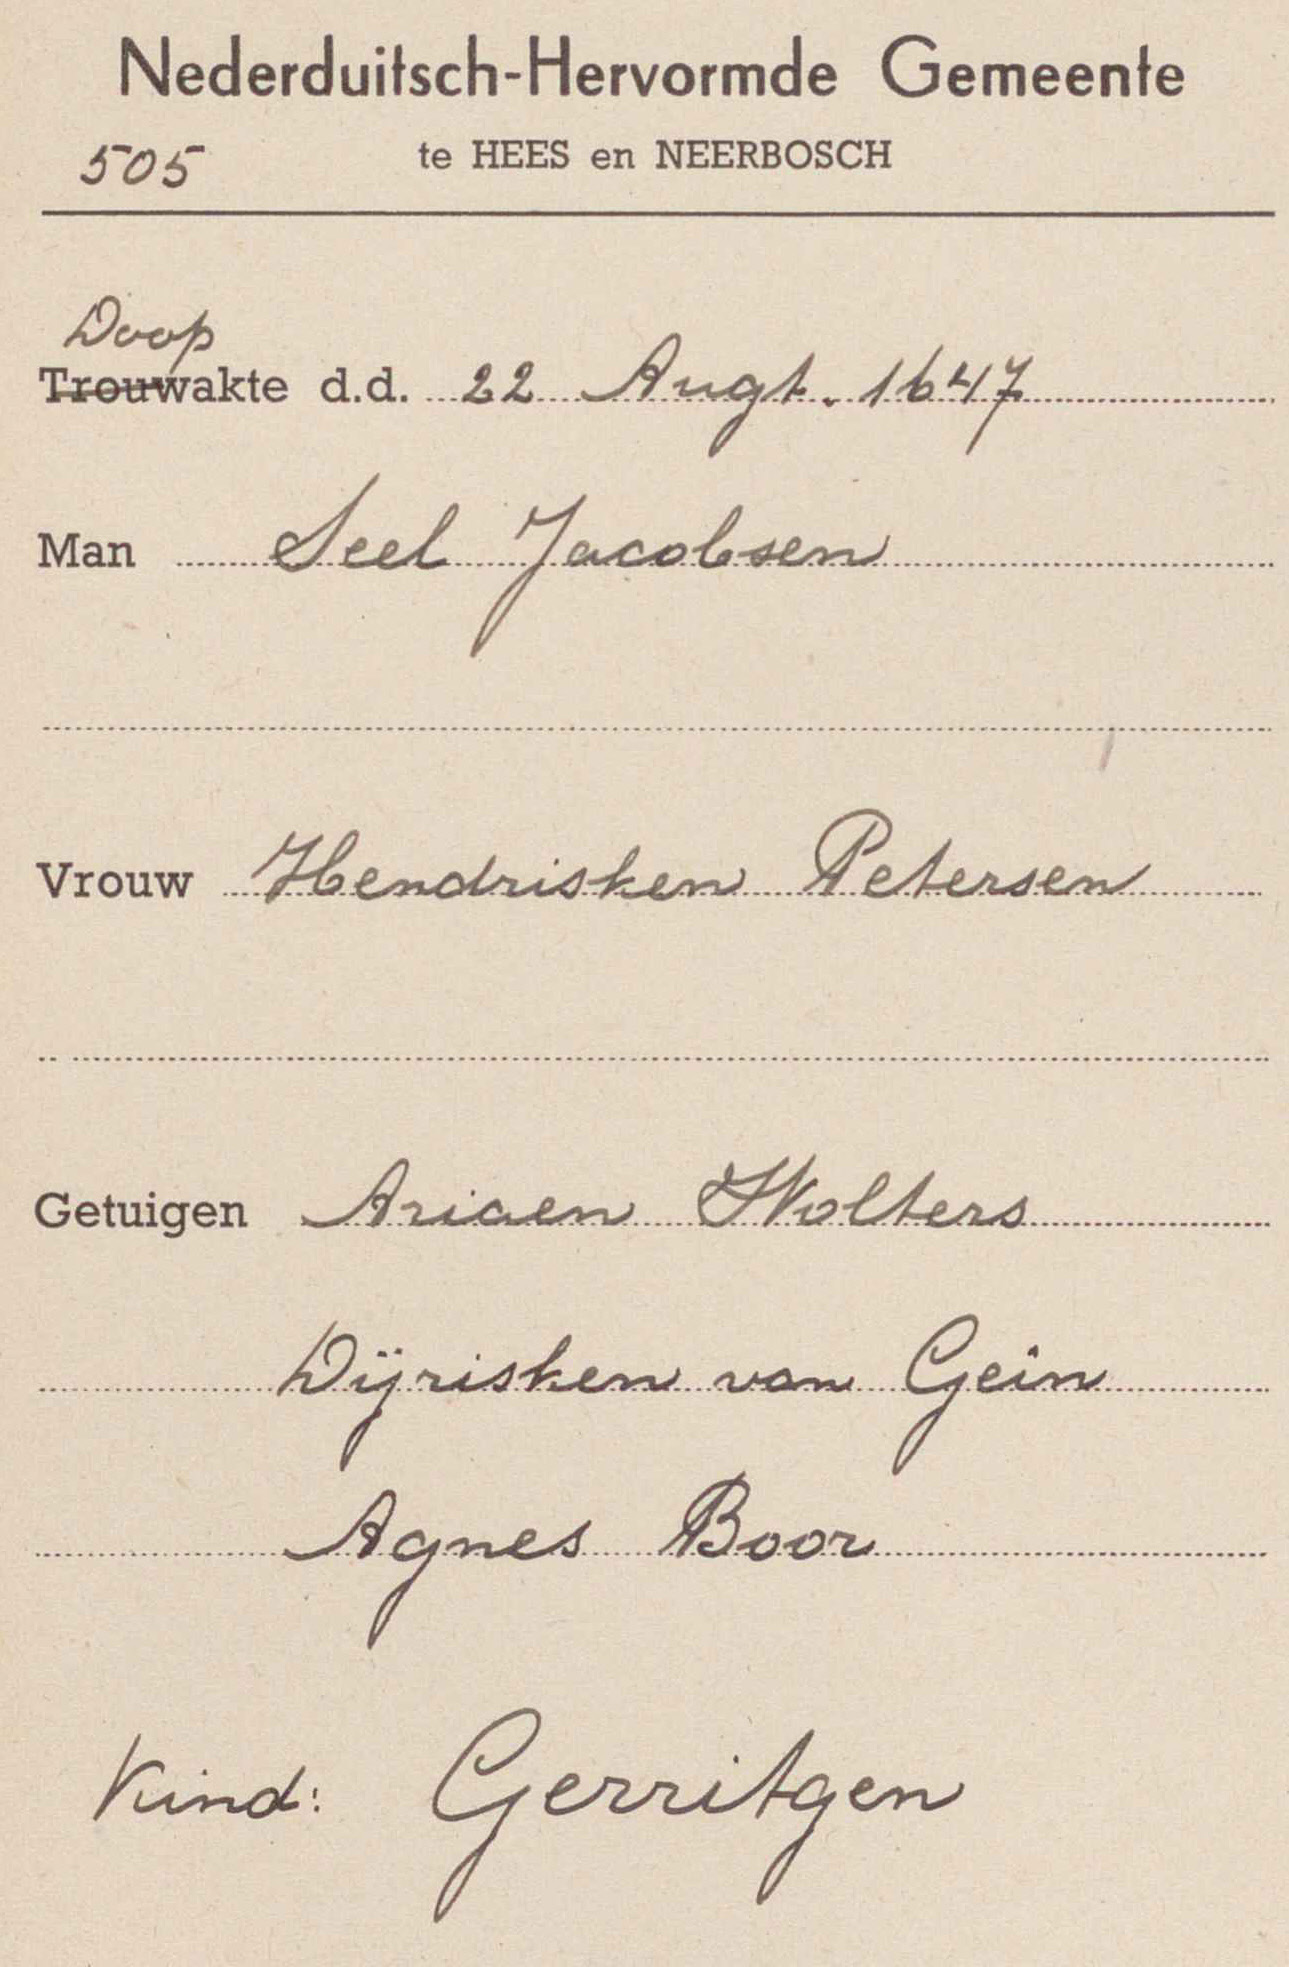 Nederduitsch-Hervormde Gemeente
505 te HEES en NEERBOSCH
Doop
Trouwakte d.d. 22 Augt. 1647
Man Seel Jacobsen
Vrouw Hendrisken Petersen
Getuigen Ariaen Wolters
Dÿrisken van Gein
Agnes Boor
Kind: Gerritgen